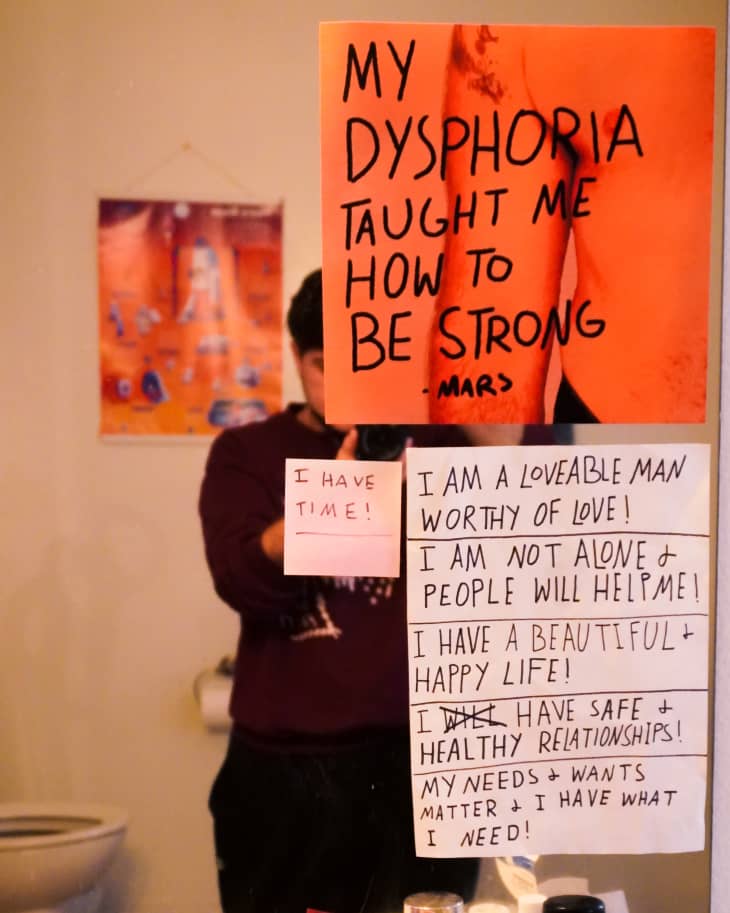 MY
DYSPHORIA
TAUGHT ME
HOW TO
BE STRONG
- MARS
I HAVE
TIME!
I AM A LOVEABLE MAN
WORTHY OF LOVE!
I AM NOT ALONE &
PEOPLE WILL HELP ME!
I HAVE A BEAUTIFUL &
HAPPY LIFE!
I WILL HAVE SAFE &
HEALTHY RELATIONSHIPS!
MY NEEDS & WANTS
MATTER & I HAVE WHAT
I NEED!